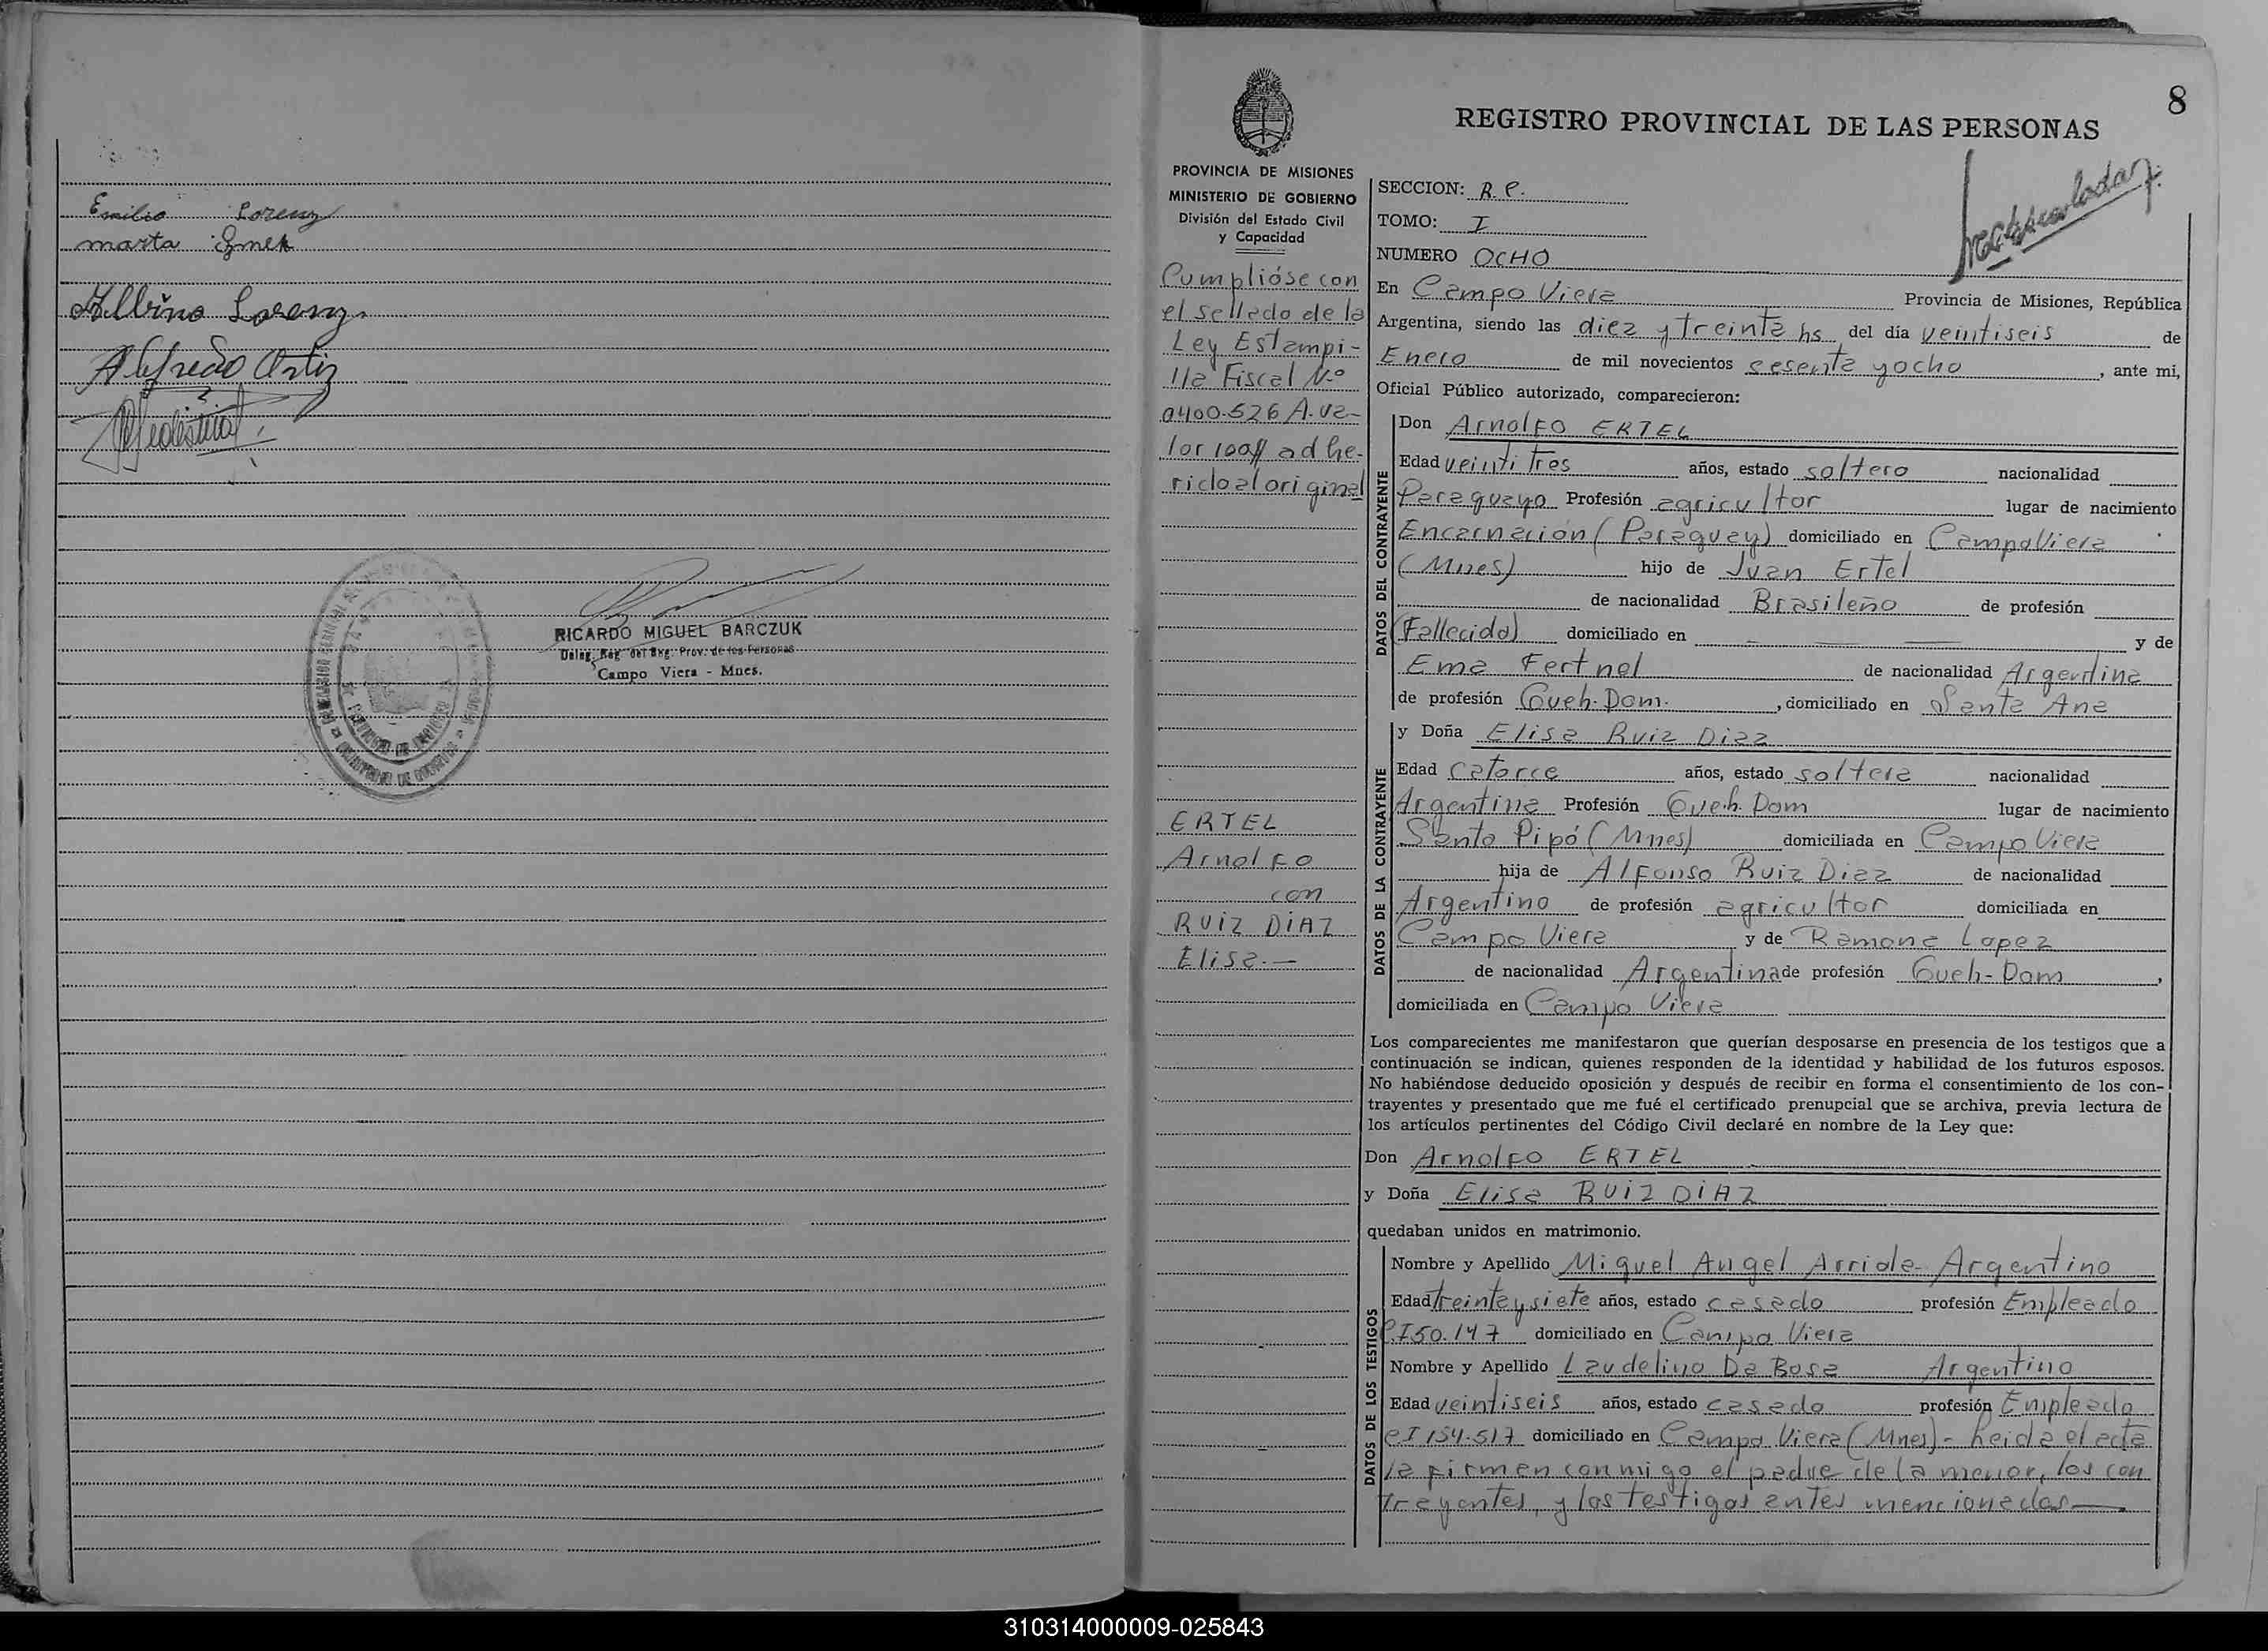 Emilio Lorenz
marta
Albino Lorenz
Alfredo Ortiz
RICARDO MIGUEL BARCZUK
Deleg. Reg. del Reg. Prov. de las Personas
Campo Viera - Mnes.
8
REGISTRO PROVINCIAL DE LAS PERSONAS
PROVINCIA DE MISIONES
MINISTERIO DE GOBIERNO
División del Estado Civil
y Capacidad
Cumplióse con
el sellado de la
Ley Estampi-
lla Fiscal N.º
0400.526 A. va-
lor 100 adhe-
rido al original
ERTEL
Arnolfo
con
RUIZ DIAZ
Elisa.—
SECCION: R.C.
TOMO: I
NUMERO OCHO
En Campo Viera Provincia de Misiones, República
Argentina, siendo las diez y treinta hs del día veintiseis de
Enero de mil novecientos sesenta y ocho, ante mi,
Oficial Público autorizado, comparecieron:
DATOS DEL CONTRAYENTE
Don Arnolfo ERTEL
Edad veinti tres años, estado soltero nacionalidad
Paraguaya Profesión agricultor lugar de nacimiento
Encarnación (Paraguay) domiciliado en Campo Viera
(Mnes) hijo de Juan Ertel
de nacionalidad Brasileño de profesión
(Fallecido) domiciliado en — y de
Ema Fertnel de nacionalidad Argentina
de profesión Queh. Dom. , domiciliado en Santa Ana
DATOS DE LA CONTRAYENTE
y Doña Elisa Ruiz Diaz
Edad catorce años, estado soltera nacionalidad
Argentina Profesión Queh. Dom lugar de nacimiento
Santo Pipó (Mnes) domiciliada en Campo Viera
hija de Alfonso Ruiz Diaz de nacionalidad
Argentino de profesión agricultor domiciliada en
Campo Viera y de Ramona Lopez
de nacionalidad Argentina de profesión Queh-Dom ,
domiciliada en Campo Viera
Los comparecientes me manifestaron que querían desposarse en presencia de los testigos que a
continuación se indican, quienes responden de la identidad y habilidad de los futuros esposos.
No habiéndose deducido oposición y después de recibir en forma el consentimiento de los con-
trayentes y presentado que me fué el certificado prenupcial que se archiva, previa lectura de
los artículos pertinentes del Código Civil declaré en nombre de la Ley que:
Don Arnolfo ERTEL
y Doña Elisa RUIZ DIAZ
quedaban unidos en matrimonio.
DATOS DE LOS TESTIGOS
Nombre y Apellido Miguel Angel Arriola - Argentino
Edad treinta y siete años, estado casado profesión Empleado
C.I 50.147 domiciliado en Campo Viera
Nombre y Apellido Laudelino Da Rosa Argentino
Edad veintiseis años, estado casado profesión Empleado
C I 154.517 domiciliado en Campo Viera (Mnes) - Leida el acta
la firman conmigo el padre de la menor, los con
trayentes, y los testigos antes mencionados —
310314000009-025843